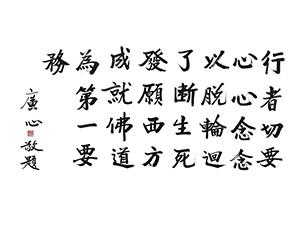 行者切要
心心念念
以脫輪迴
了斷生死
發願西方
成就佛道
為第一要
務
廣心敬題